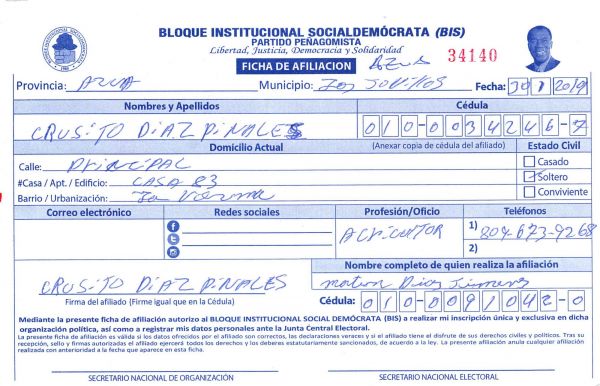 BLOQUE INSTITUCIONAL SOCIALDEMÓCRATA (BIS)
PARTIDO PEÑAGOMISTA
Libertad, Justicia, Democracia y Solidaridad
FICHA DE AFILIACION AZUA 34140
Provincia: AZUA Municipio: Los JOVILLOS Fecha: 30 1 2019
Nombres y Apellidos Cédula
CRUSITO DIAZ PINALES 010-0034246-7
Domicilio Actual (Anexar copia de cédula del afiliado) Estado Civil
Calle: PRINCIPAL Casado
#Casa / Apt. / Edificio: CASA 83 Soltero
Barrio / Urbanización: Conviviente
Correo electrónico Redes sociales Profesión/Oficio Teléfonos
AGRICULTOR 1) 809-673-9268
2)
Nombre completo de quien realiza la afiliación
CRUSITO DIAZ PINALES Diaz
Firma del afiliado (Firme igual que en la Cédula) Cédula: 010-0091042-0
Mediante la presente ficha de afiliación autorizo al BLOQUE INSTITUCIONAL SOCIAL DEMÓCRATA (BIS) a realizar mi inscripción única y exclusiva en dicha
organización política, así como a registrar mis datos personales ante la Junta Central Electoral.
La presente ficha de afiliación es válida si los datos ofrecidos por el afiliado son correctos, las declaraciones veraces y si el afiliado tiene el disfrute de sus derechos civiles y políticos. Tras su
recepción, sello y firmas autorizadas el afiliado ejercerá todos los derechos y los deberes estatutariamente sancionados, de acuerdo a la ley. La presente afiliación anula cualquier afiliación
realizada con anterioridad a la fecha que aparece en esta ficha.
SECRETARIO NACIONAL DE ORGANIZACIÓN SECRETARIO NACIONAL ELECTORAL